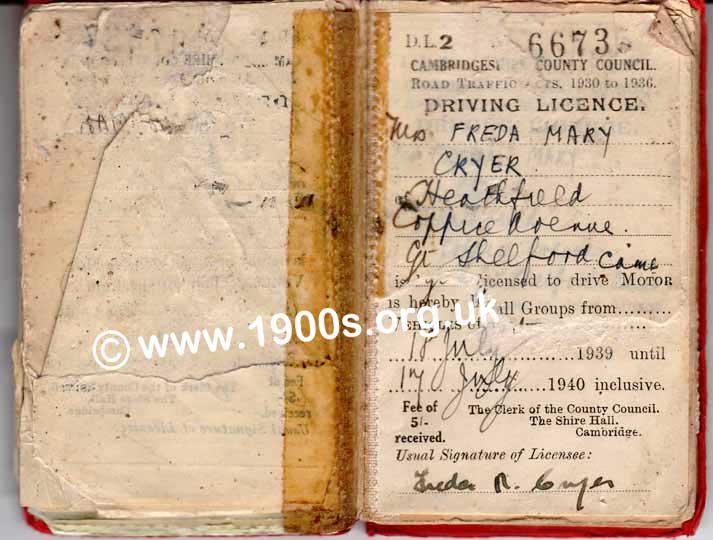 D.L.2 6673
CAMBRIDGES COUNTY COUNCIL.
ROAD TRAFFIC TS, 1930 TO 1936.
DRIVING LICENCE.
Mrs FREDA MARY
CRYER
of Heathfield
Coppice Avenue.
Gt Shelford Cams
is licensed to drive MOTOR
is hereby all Groups from
© www.1900s.org.uk
18 July 1939 until
17 July 1940 inclusive.
Fee of The Clerk of the County Council.
5/- The Shire Hall.
received. Cambridge.
Usual Signature of Licensee:
Freda M. Cryer